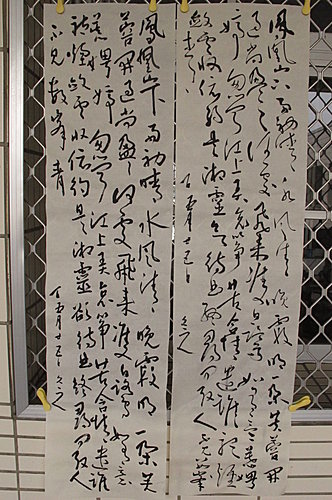 鳳凰山下雨初晴水風清晚霞明一朵芙蕖開
過尚盈盈何處飛來雙白鷺如有意慕
娉婷忽聞江上弄哀箏苦含情遣誰聽煙
斂雲收依約是湘靈欲待曲終尋問取人不見數峯
青
鳳凰山下雨初晴水風清晚霞明一朵芙
蕖開過尚盈盈何處飛來雙白鷺如有意
慕娉婷忽聞江上弄哀箏苦含情遣誰
聽煙斂雲收依約是湘靈欲待曲終尋問取人
不見數峯青